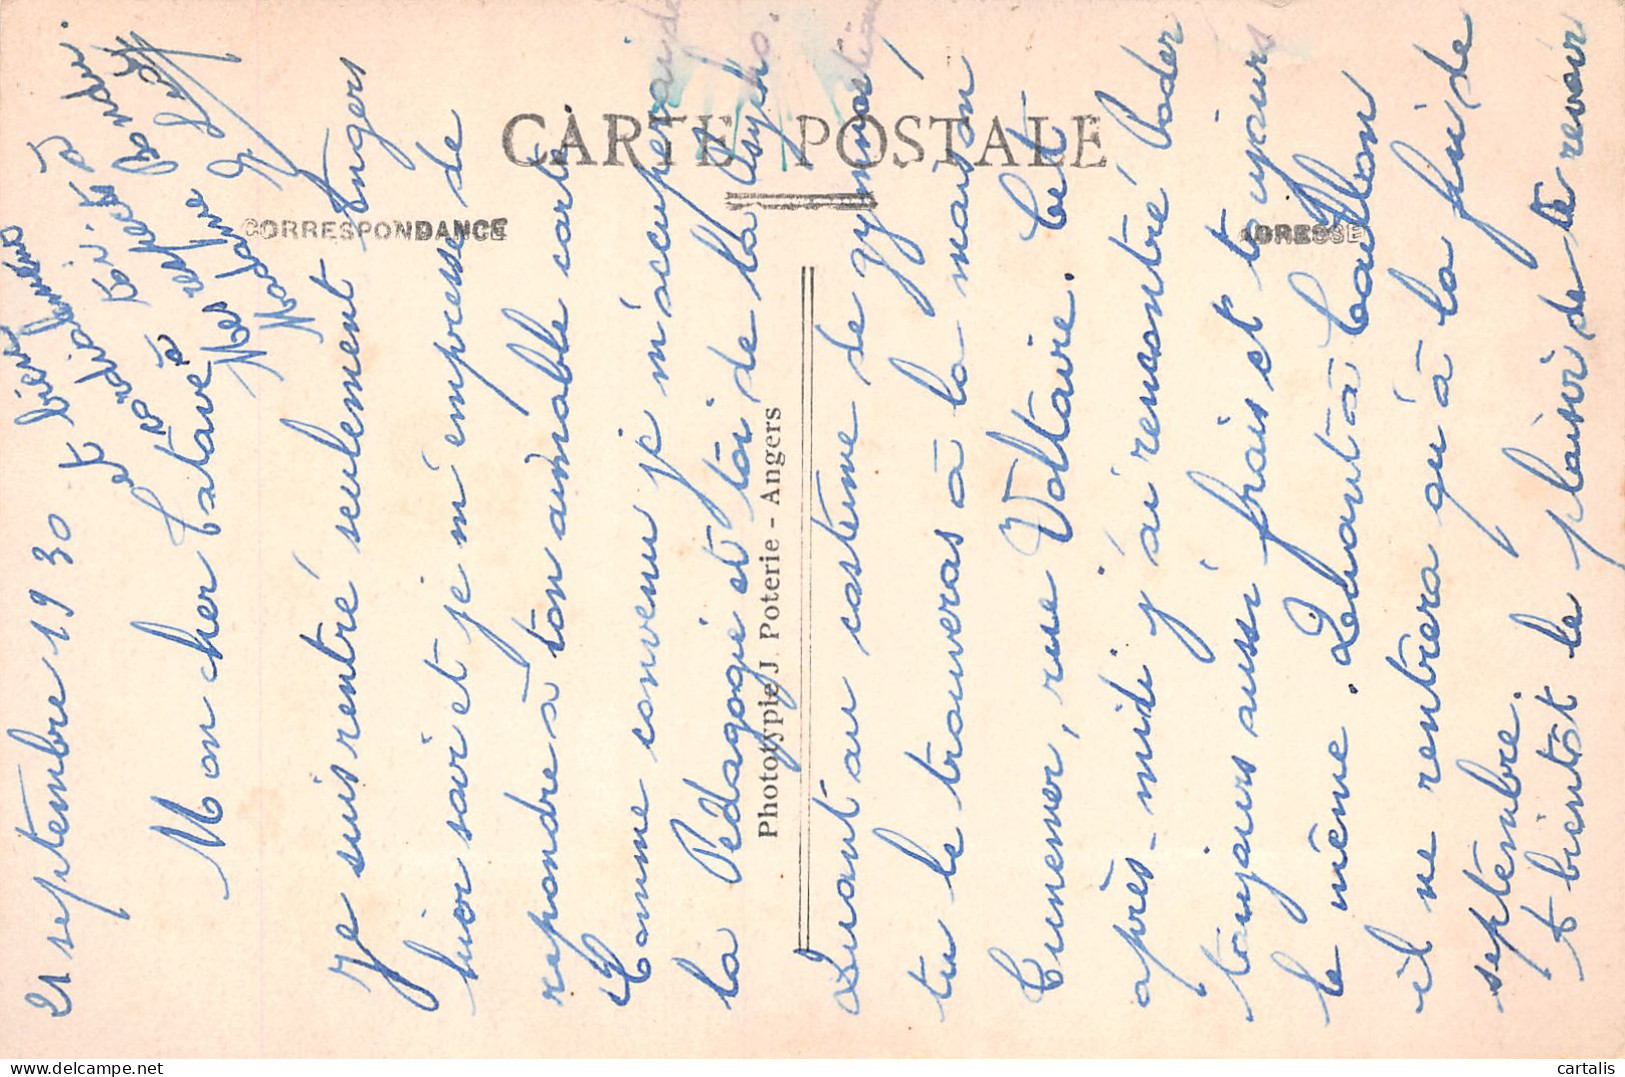 CARTE POSTALE
CORRESPONDANCE
ADRESSE
Phototypie J. Poterie - Angers
21 septembre 1930
Mon cher
Je suis rentré seulement Angers
hier soir et je m'empresse de
repondre à ton aimable carte.
Comme convenu je m'occuperai de
la Pédagogie et toi de la Psycho.
Quant au costume de gymnastique,
tu le trouveras à la maison
rue Voltaire. Cet
après-midi j'ai rencontré
toujours aussi frais et toujours
le même. Quant à
il ne rentrera qu'à la fin de
septembre.
A bientôt le plaisir de te revoir
et bien